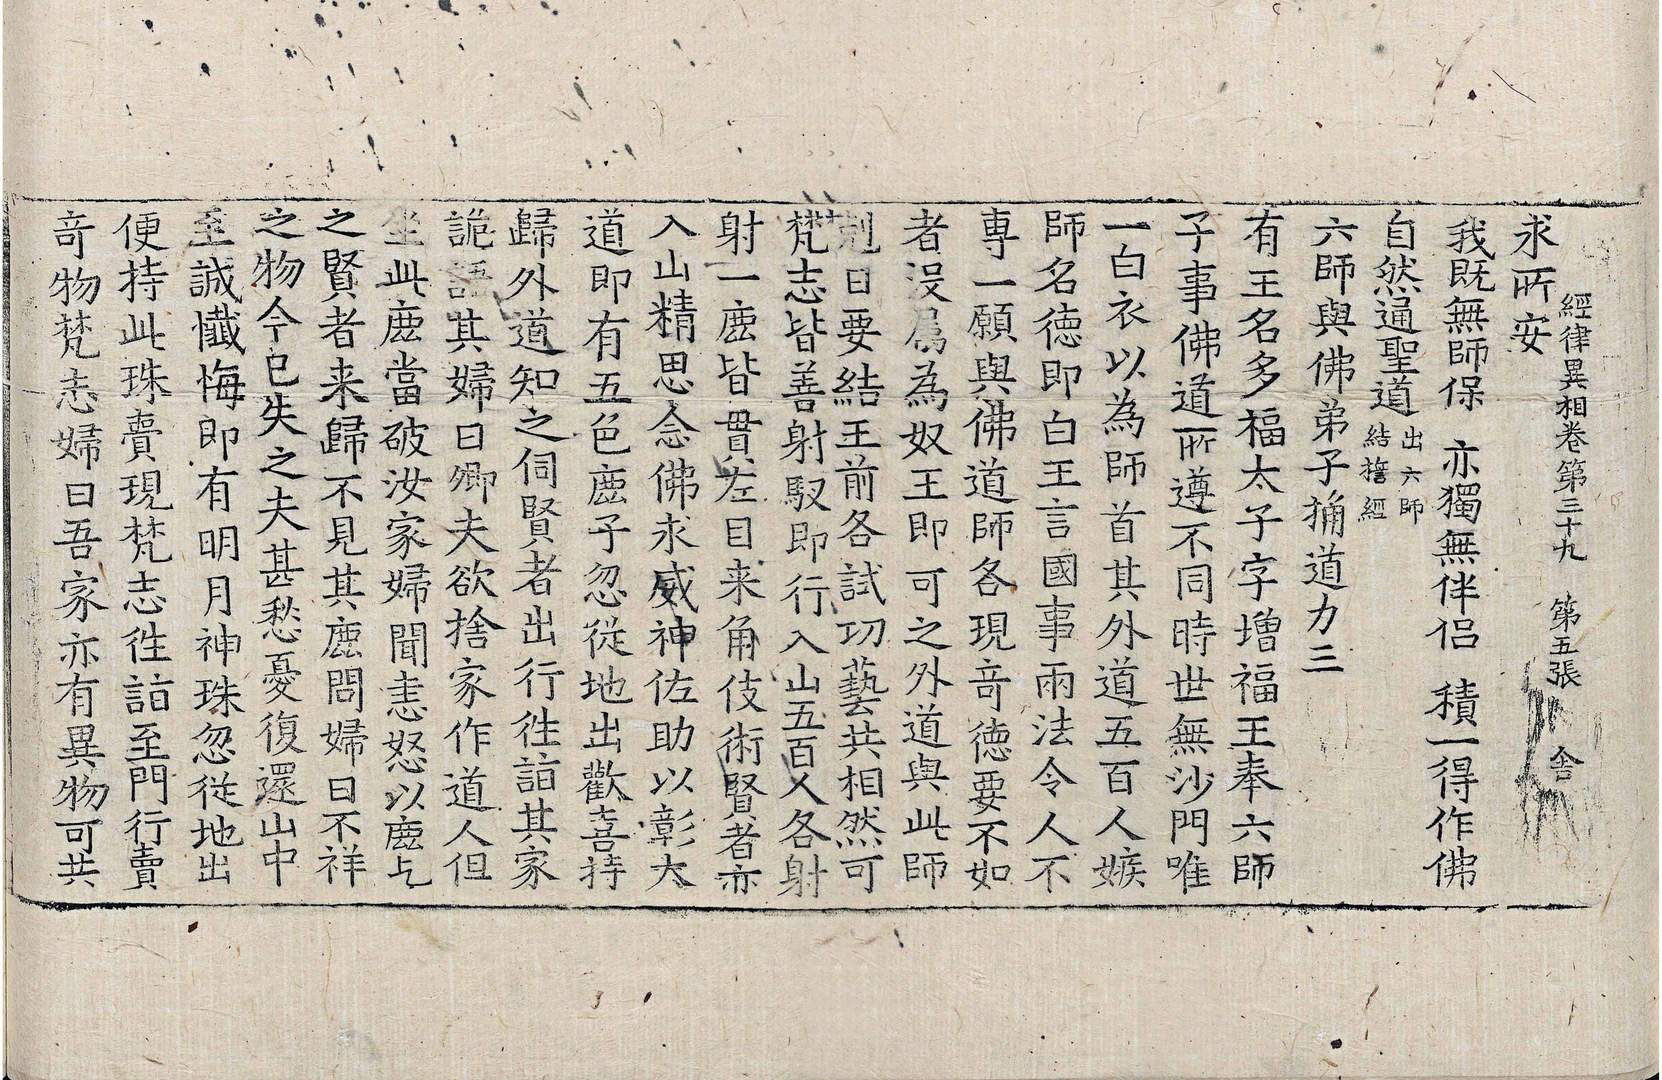 經律異相卷第三十九 第五張 舍
求所安
我既無師保 亦獨無伴侶 積一得作佛
自然通聖道 出六師結誓經
六師與佛弟子捔道力三
有王名多福太子字增福王奉六師
子事佛道所遵不同時世無沙門唯
一白衣以為師首其外道五百人嫉
師名德即白王言國事兩法令人不
專一願與佛道師各現奇德要不如
者没属為奴王即可之外道與此師
剋日要結王前各試功藝共相然可
梵志皆善射馭即行入山五百人各射
射一鹿皆貫左目来角伎術賢者亦
入山精思念佛求威神佐助以彰大
道即有五色鹿子忽從地出歡喜持
歸外道知之伺賢者出行徃詣其家
詭語其婦曰卿夫欲捨家作道人但
坐此鹿當破汝家婦聞恚怒以鹿乞
之賢者来歸不見其鹿問婦婦曰不祥
之物今已失之夫甚愁憂復還山中
至誠懺悔即有明月神珠忽從地出
便持此珠賣現梵志徃詣至門行賣
奇物梵志婦曰吾家亦有異物可共